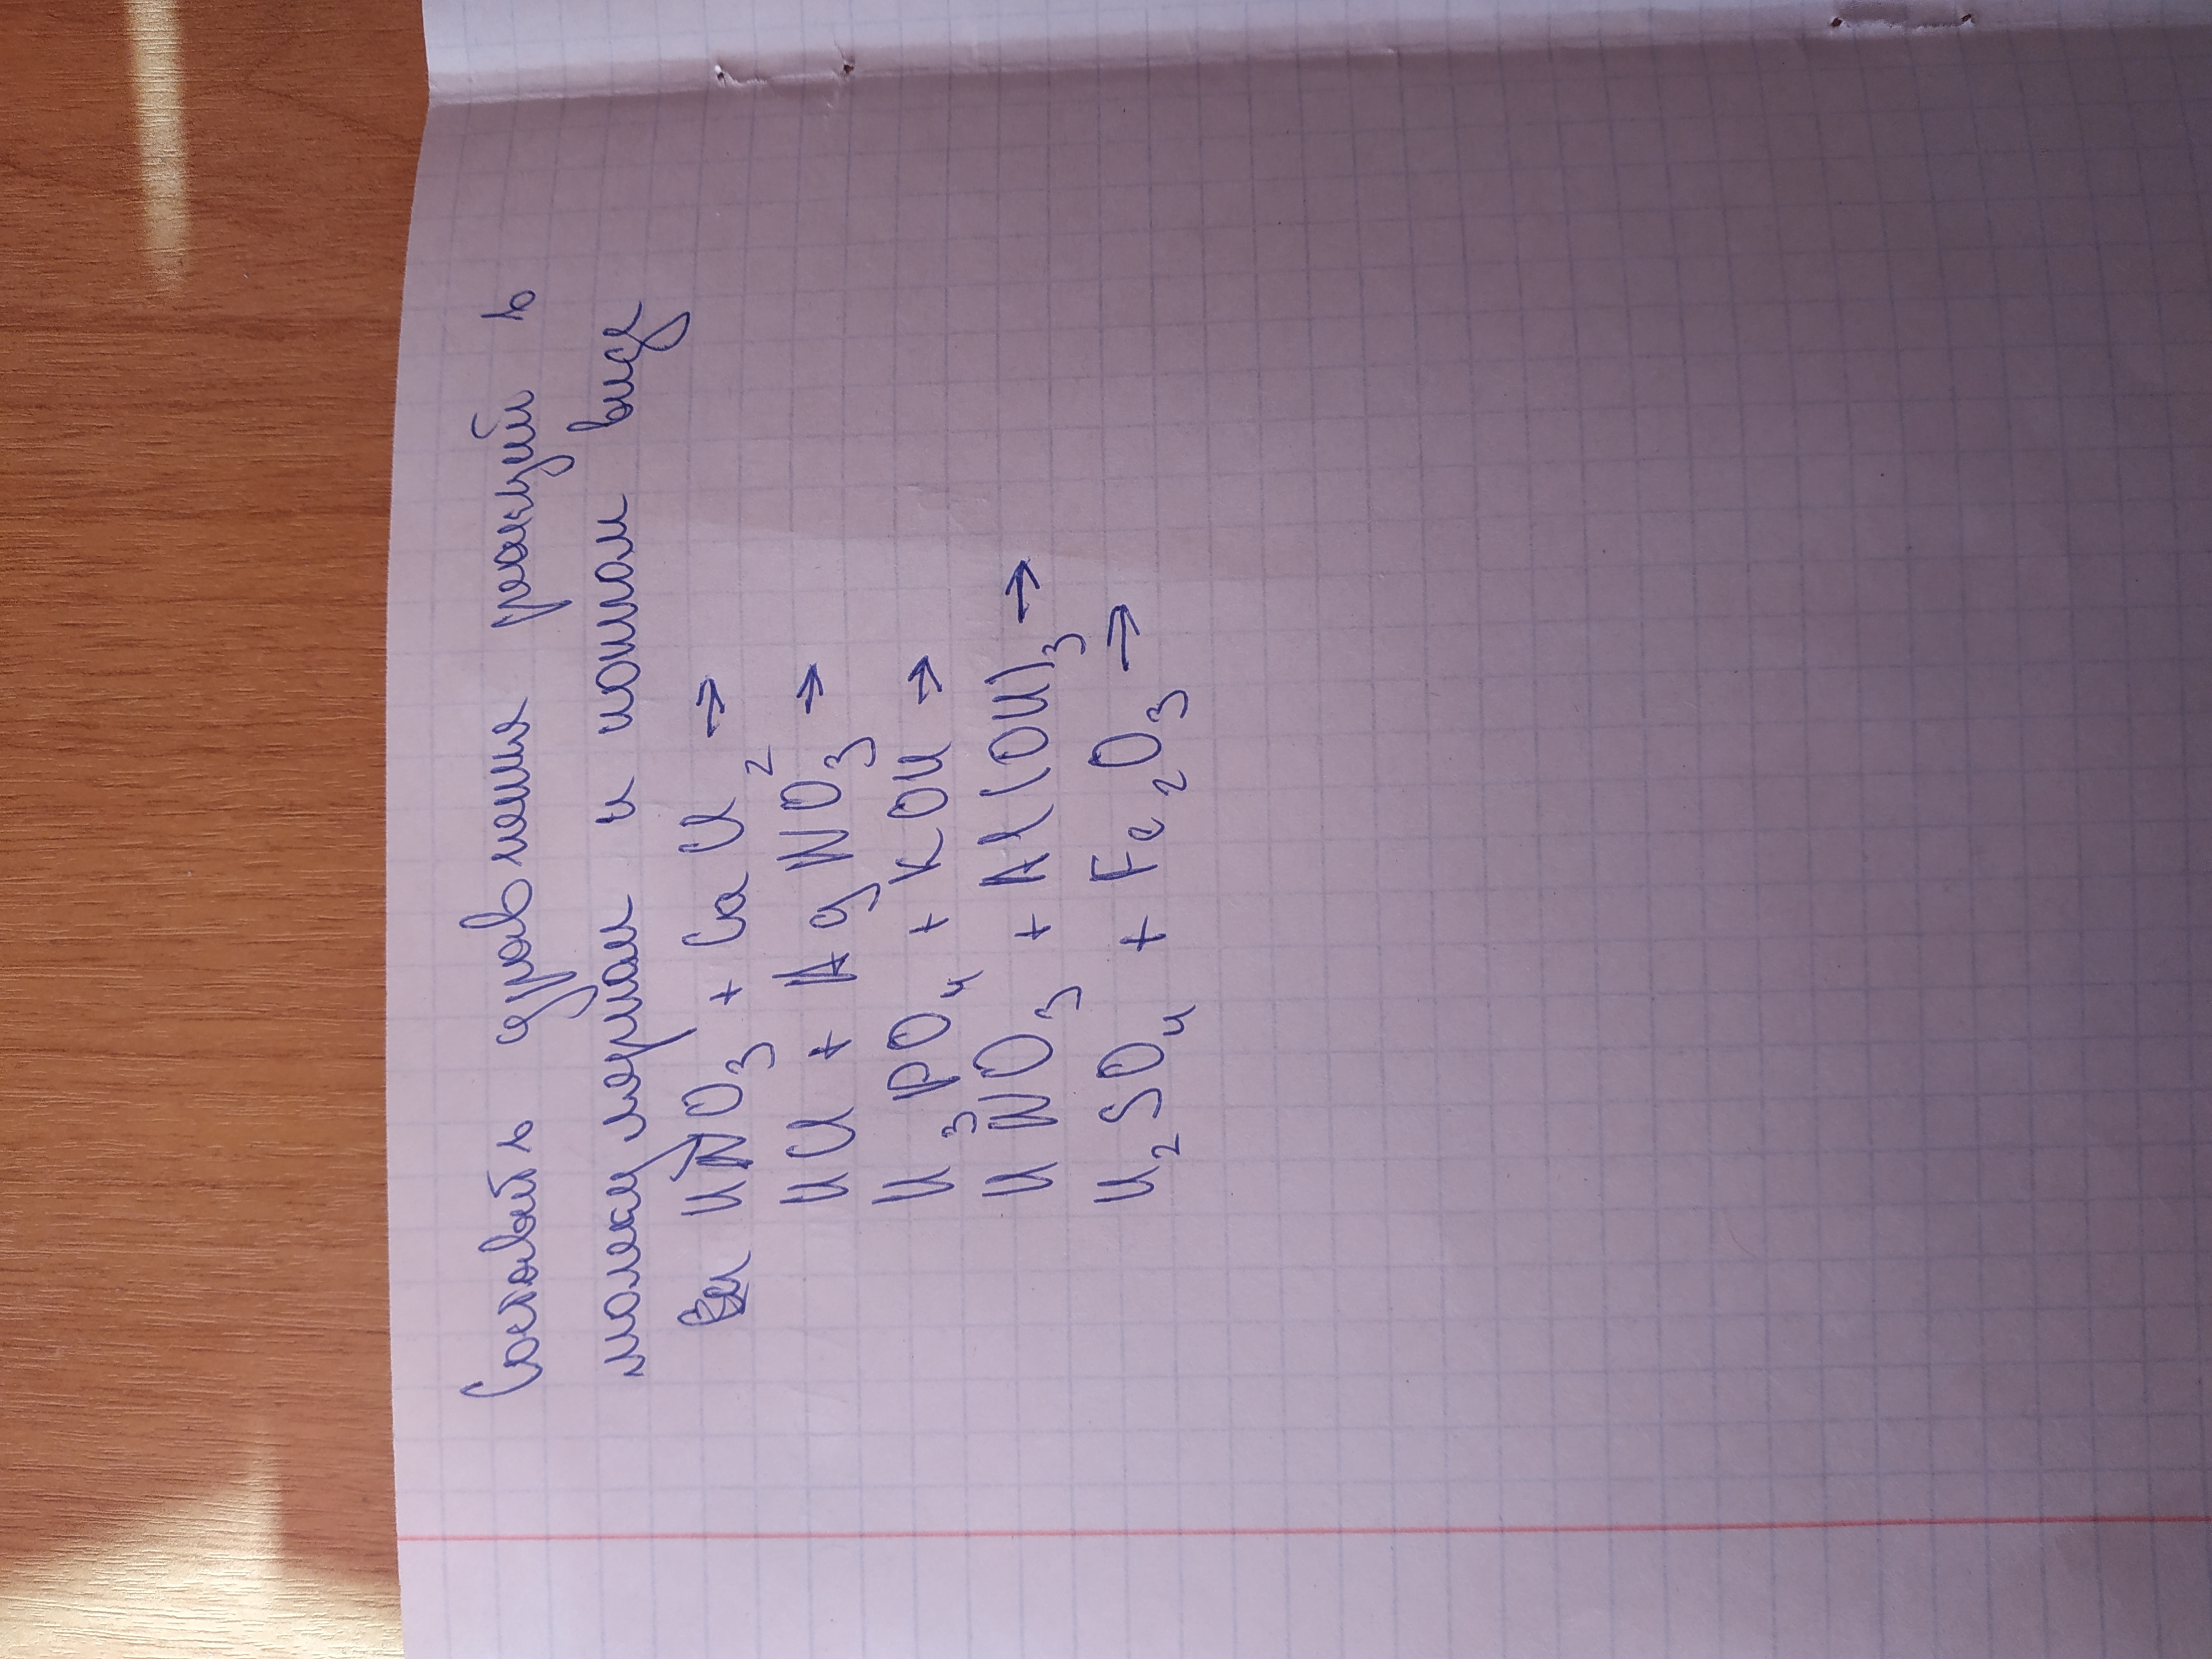 Составить уравнения реакций в
молекулярном и ионном виде
HNO3 + CaCl2 →
HCl + AgNO3 →
H3PO4 + KOH →
HNO3 + Al(OH)3 →
H2SO4 + Fe2O3 →